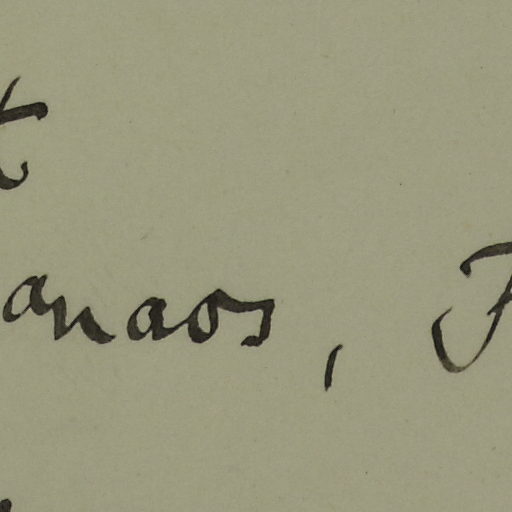 t
anaos, F